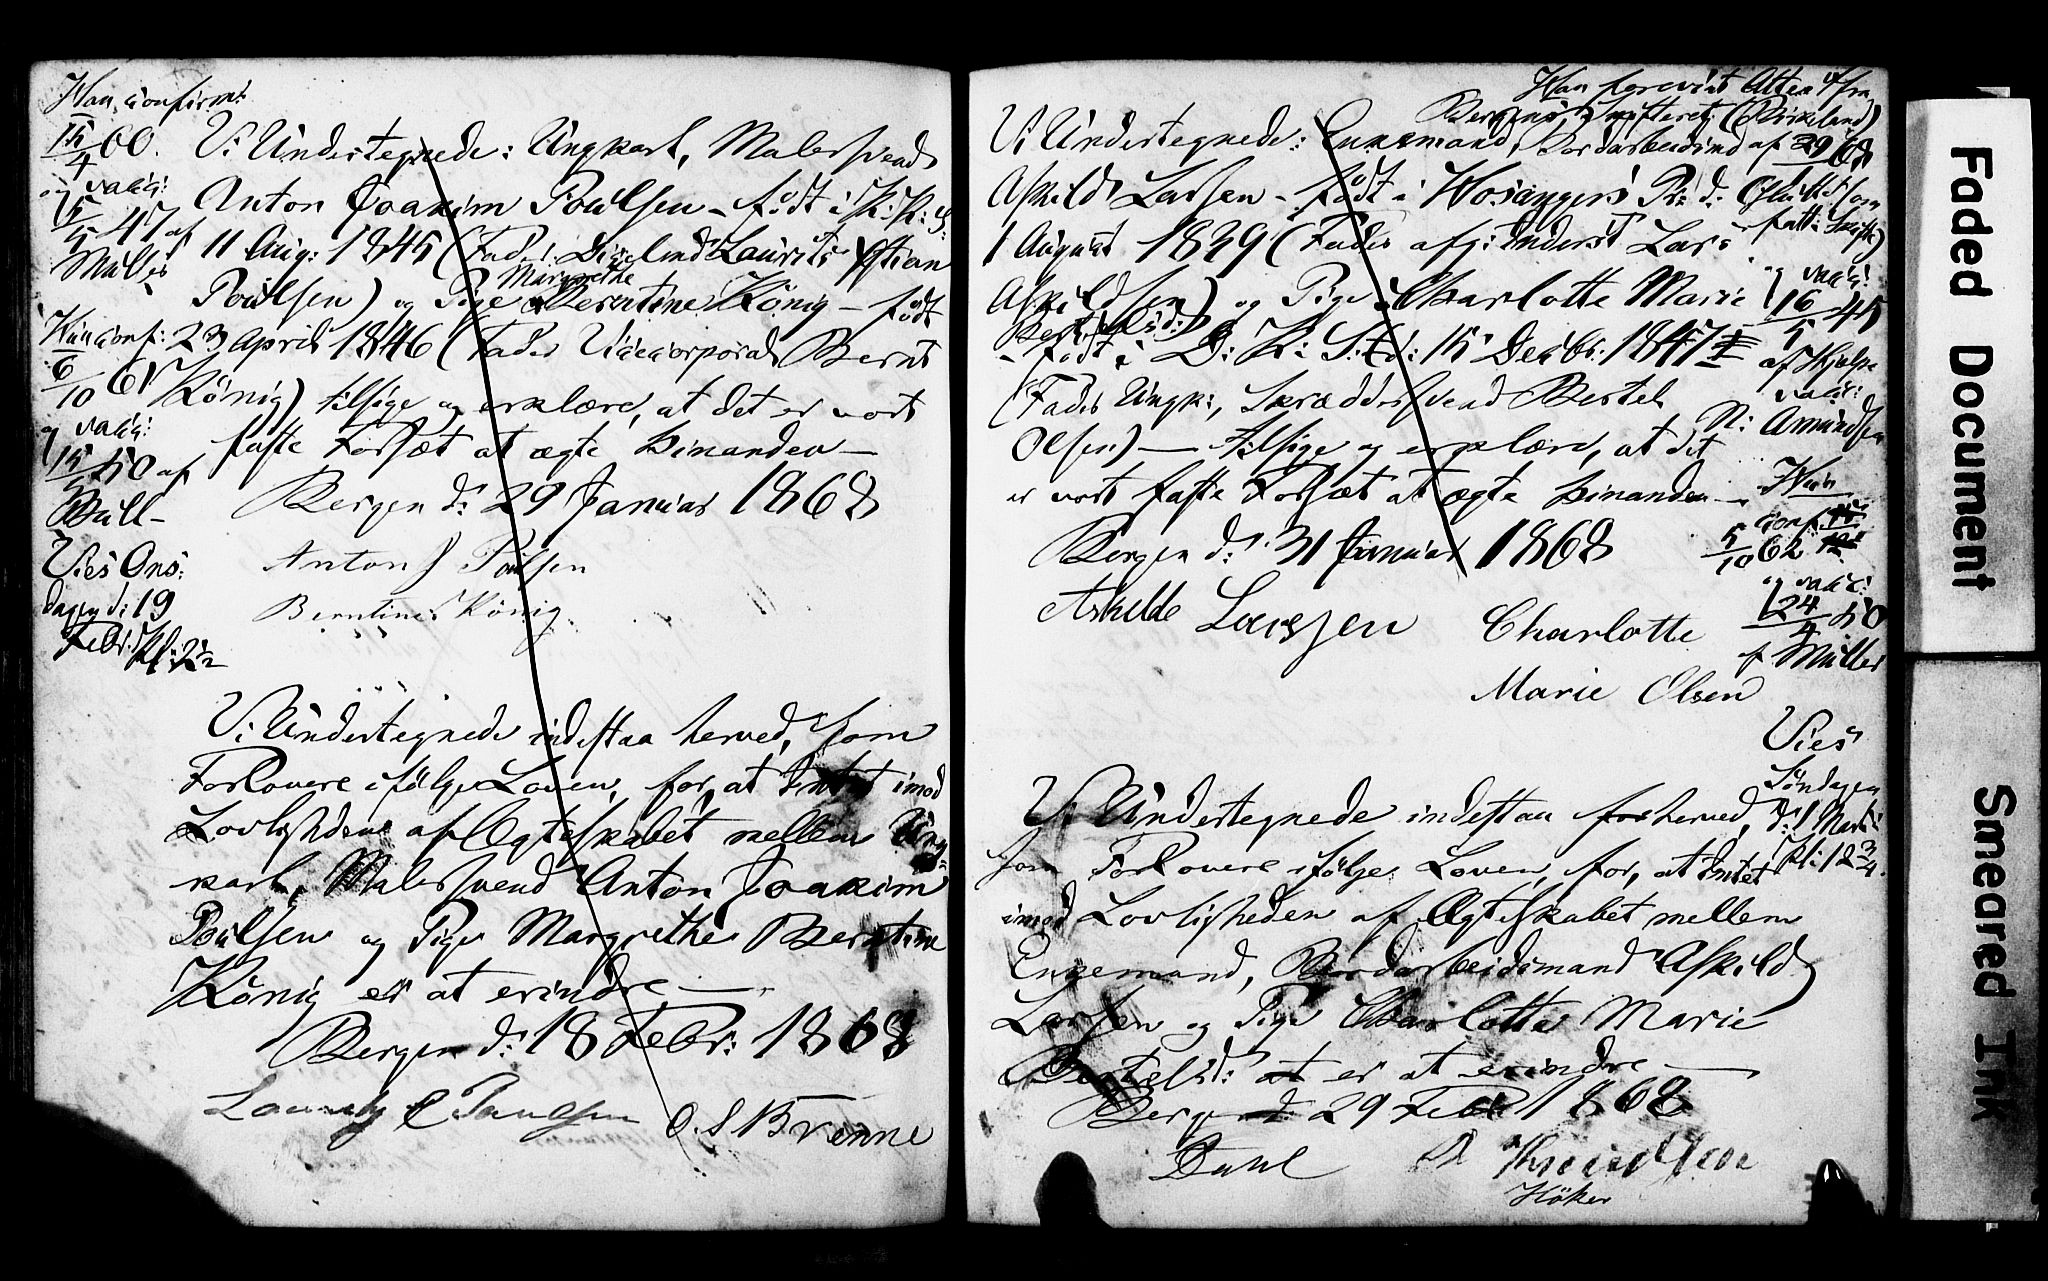 Han confirm:
15/4 60.
og vacc:
5/5 47 af
Müller
Hun conf:
6/10 61
og vacc:
15/5 50 af
Bull
Vies Ons:
dagen d: 19
Febr: Kl: 2½
Vi Undertegnede: Ungkarl, Malersvend
Anton Joakim Poulsen – født i K: K: S:
11 Aug: 1845 (Fader: Laurits Xstian
Poulsen) og Pige Margrethe Berntine König – født
23 April 1846 (Fader Vicecorporal Bernt
König) tilsige og erklære, at det er vort
faste Forsæt at ægte hinanden –
Bergen d: 29 Januar 1868
Anton J Poulsen
Berntine König
Vi Undertegnede indestaa herved, som
Forlovere ifölge Loven, for, at Intet imod
Lovligheden af Ægteskabet mellem Ung-
karl, Malersvend Anton Joakim
Poulsen og Pige Margrethe Berntine
König er at erindre –
Bergen d: 18 Febr: 1868
C Paulsen O. S Brenne
Han forevist Attest fra
Bergens Skifteret (Birkeland)
Vi Undertegnede: Enkemand, Bordarbeidsmd af 29
Askild Larsen – født i Hosangers Pr: d:
1 August 1839 (Fader afg: Inderst Lars
Askildsen) og Pige Charlotte Marie
Bertelsd:
– født i D: K: S: d: 15 Decbr: 1847
(Fader Ungk:, Skræddersvend Bertel
Olsen) – tilsige og erklære, at det
er vort faste Forsæt at ægte hinanden –
Bergen d: 31 Januar 1868
Askilde Larsen Charlotte
Marie Olsen
og vacc:
16/5 45
af Hjelpe
vacc:
N: Amundsen
Hun
conf:
5/10 62
og vacc:
24/4 50
f Müller
Vies
Söndagen
d: 1 Marts
Kl: 12¾.
Vi Undertegnede indestaa for herved,
som Forlovere ifölge Loven, for, at Intet
imod Lovligheden af Ægteskabet mellem
Enkemand, Bordarbeidsmand Askild
Larsen og Pige Charlotte Marie
Bertelsd: at er at erindre –
Bergen d: 29 Febr 1868
Dahl Knudsen
Höker
Faded Document
Smeared Ink